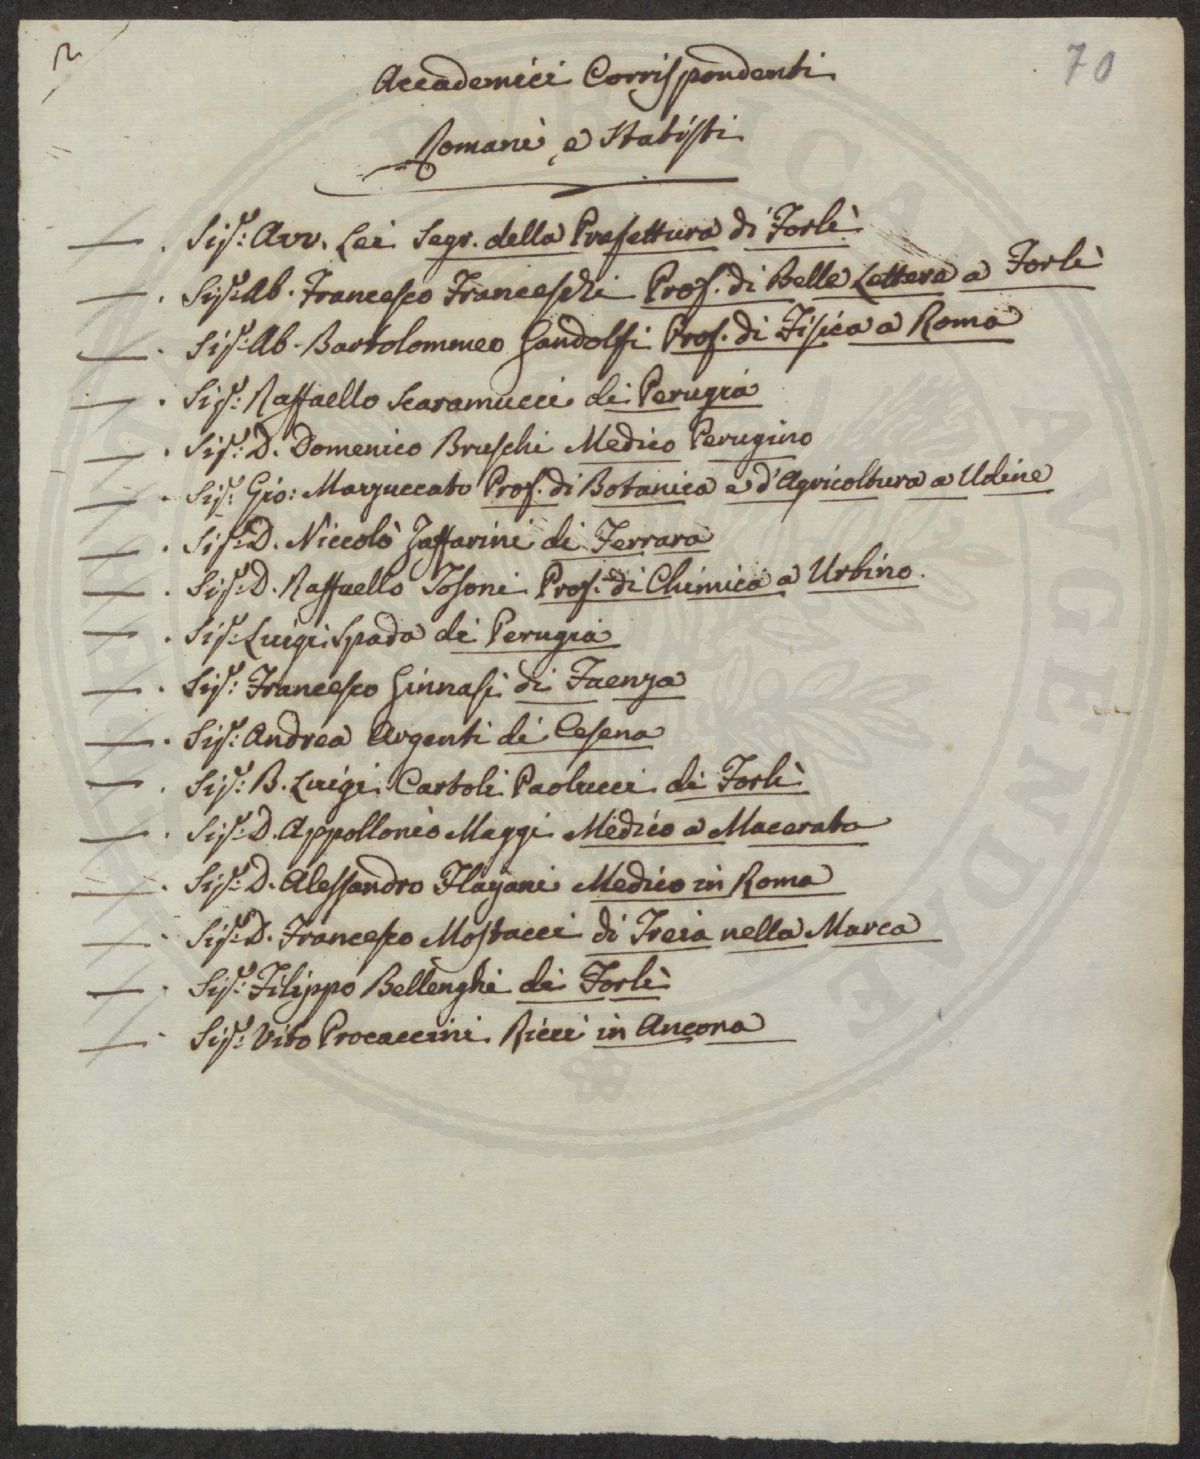 70
Accademici Corrispondenti
Romani, e Statisti
Sig.r Avv. Lei Segr. della Prefettura di Forlì
Sig.r Ab. Francesco Franceschi Prof. di Belle Lettere a Forlì
Sig.r Ab. Bartolommeo Gandolfi Prof. di Fisica a Roma
Sig.r Raffaello Scaramucci di Perugia
Sig.r D. Domenico Bruschi Medico Perugino
Sig.r Gio: Mazzuccato Prof. di Botanica e d'Agricoltura a Udine
Sig.r D. Niccolò Zaffarini di Ferrara
Sig.r D. Raffaello Tosoni Prof. di Chimica a Urbino
Sig.r Luigi Spada di Perugia
Sig.r Francesco Ginnasi di Faenza
Sig.r Andrea Argenti di Cesena
Sig.r B. Luigi Cartoli Paolucci di Forlì
Sig.r D. Appollonio Maggi Medico a Macerata
Sig.r D. Alessandro Flajani Medico in Roma
Sig.r D. Francesco Mostacci di Treia nella Marca
Sig.r Filippo Bellenghi di Forlì
Sig.r Vito Procaccini Ricci in Ancona